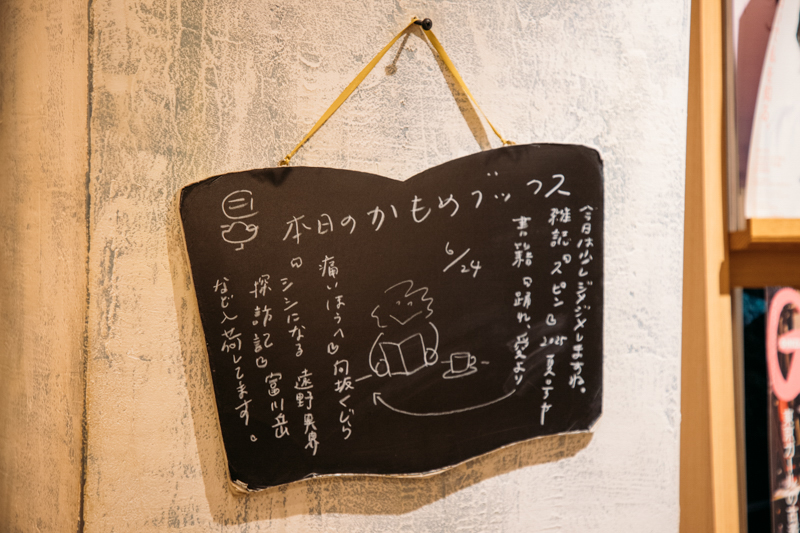 本日のかもめブックス
6/24
今日は少しジメジメしますね。
雑誌『スピン』2025夏号や
書籍『踊れ、愛より
痛いほうへ』向坂くじら
『シシになる 遠野異界
探訪記』富川岳
など入荷してます。